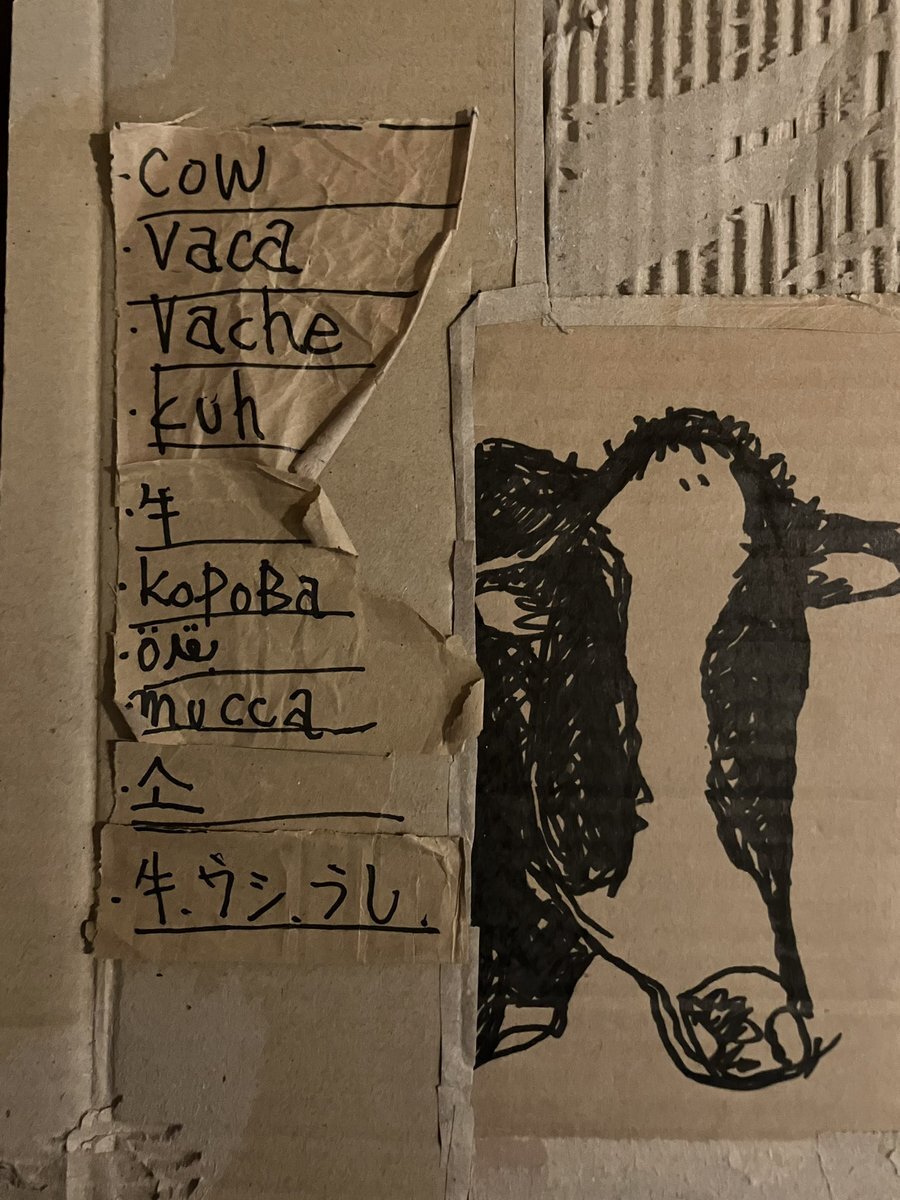 · cow
· vaca
· Vache
· kuh
· 牛
· kopoBa
· öиё
· mucca
· 소
· 牛、ウシ、うし.